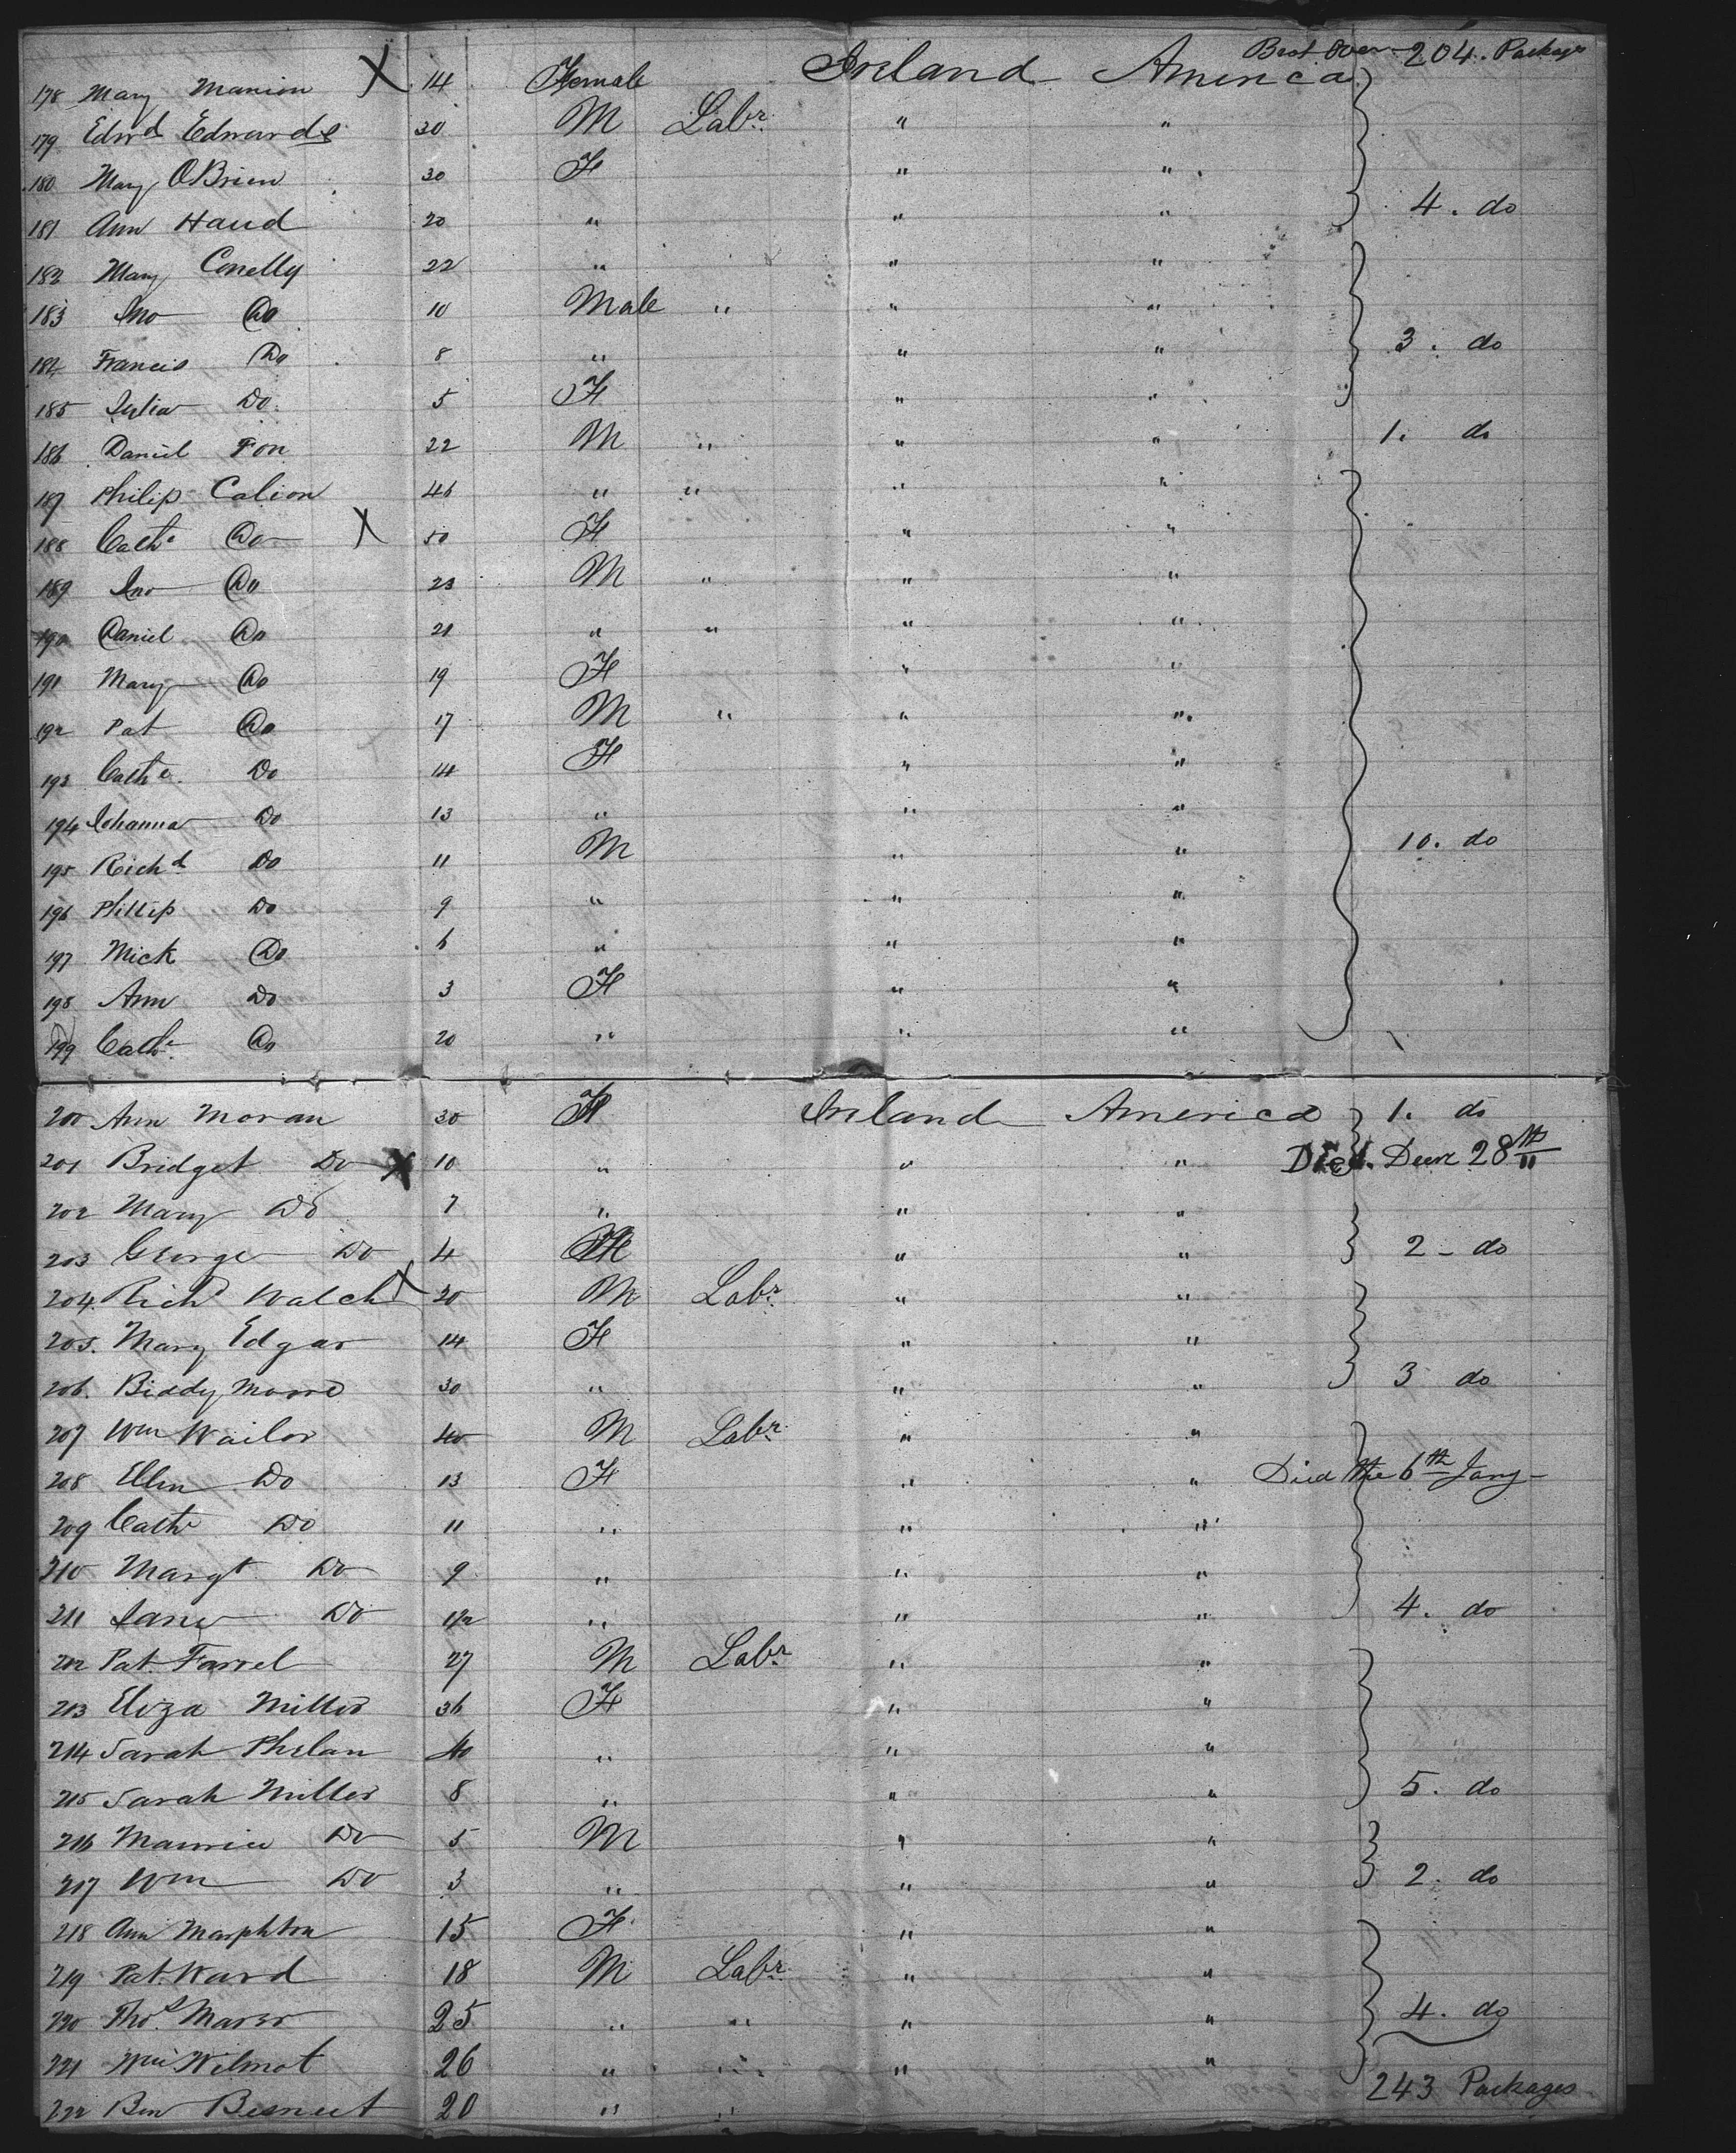 Brot Over 204. Packages
178 Mary Manion X 14 Female Ireland America
179 Edwd Edwards 30 M Labr. " "
180 Mary OBrien 30 F " "
181 Ann Hand 20 " " " 4. do
182 Mary Conelly 22 " " "
183 Jno Do 10 Male " " "
184 Francis Do 8 " " " 3. do
185 Julia Do 5 F " "
186 Daniel Fon 22 M " " " 1. do
187 Philip Calion 46 " " " "
188 Cathe Do X 50 F " "
189 Jno Do 23 M " " "
190 Daniel Do 21 " " " "
191 Mary Do 19 F " "
192 Pat Do 17 M " " "
193 Cathe. Do 14 F " "
194 Johanna Do 13 " " "
195 Richd Do 11 M " " 10. do
196 Phillip Do 9 " " "
197 Mick Do 6 " " "
198 Ann Do 3 F " "
199 Cathe. Do 20 " " "
200 Ann Moran 30 F Ireland America 1. do
201 Bridget Do X 10 " " " Died. Decr 28th
202 Mary Do 7 " " "
203 George Do 4 M " " 2 - do
204. Richd Walch X 20 M Labr. " "
205. Mary Edgar 14 F " "
206. Biddy 30 " " " 3 do
207 Wm Wailor 40 M Labr. " "
208 Ellen Do 13 F " " Died the 6th Jany -
209 Cathe Do 11 " " "
210 Margt Do 9 " " "
211 Jane Do 1/2 " " " 4. do
212 Pat. Farrel 27 M Labr " "
213 Eliza Miller 36 F " "
214 Sarah Phelan 40 " " "
215 Sarah Miller 8 " " " 5. do
216 Maurice Do 5 M " "
217 Wm Do 3 " " " 2. do
218 Ann 15 F " "
219 Pat. Ward 18 M Labr. " "
220 Thos. 25 " " " " 4. do
221 Wm Wilmot 26 " " " "
222 Ben 20 " " 243 Packages